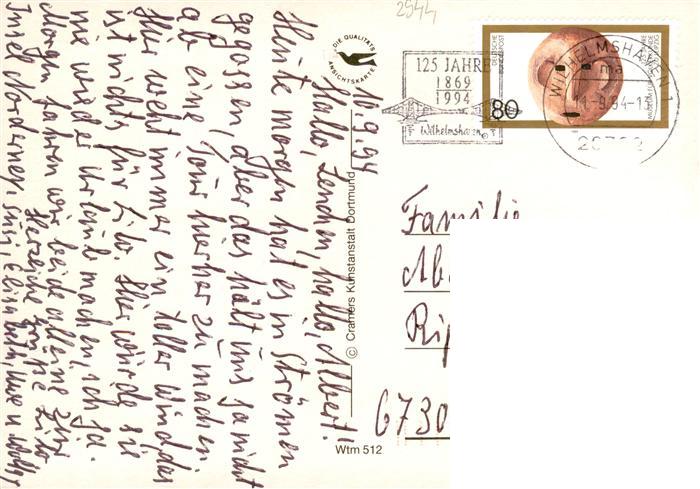 10.9.94
Hallo, Lenchen, hallo, Albert!
Heute morgen hat es in Strömen
gegossen aber das hält uns ja nicht
ab eine Tour hierher zu machen
Hier weht immer ein toller Wind, das
ist nichts für Lilo. Hier würde sie
nie wieder Urlaub machen, ich ja.
Morgen fahren wir beide alleine zur
Insel Norderney. Herzliche Grüße Lilo
Susi, Elisabeth, Uwe u Wolly
DIE QUALITÄTS
ANSICHTSKARTE
© Cramers Kunstanstalt Dortmund
Wtm 512
2944
125 JAHRE
1869
1994
Wilhelmshaven
DEUTSCHE
BUNDESPOST
80
WILHELMSHAVEN 1
ma
11.-9.94-15
Familie
Ab
Rip
6730